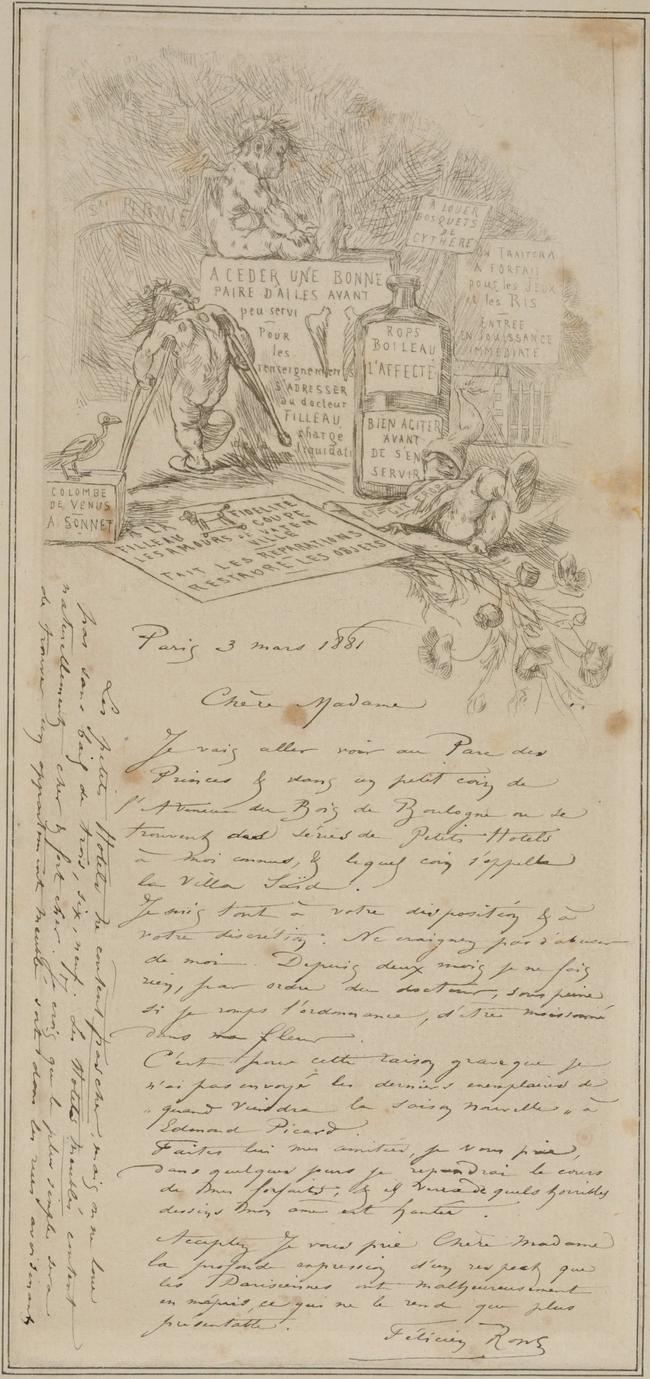 Ste PERINE
A LOUER
BOSQUETS
DE
CYTHÈRE
ON TRAITERA
A FORFAIT
pour les JEUX
et les RIS
ENTRÉE
EN JOUISSANCE
IMMÉDIATE
A CEDER UNE BONNE
PAIRE D'AILES AVANT
peu servi
POUR
les
renseignements
S'ADRESSER
au docteur
FILLEAU
chargé
liquidati
ROPS
BOILEAU
L'AFFECTÉ
BIEN AGITER
AVANT
DE S'EN
SERVIR
COLOMBE
DE VENUS
A. SONNET
A LA FIDELITÉ
FILLEAU COUPE
LES AMOURS ET VA EN
VILLE
FAIT LES REPARATIONS
RESTAURE LES OBJETS
Paris 3 mars 1881
Chère Madame
Je vais aller voir au Parc des
Princes & dans un petit coin de
l'Avenue du Bois de Boulogne ou se
trouvent des séries de Petits Hotels
à moi connus, & lequel coin s'appelle
la Villa Saïd.
Je suis tout à votre disposition & à
votre discretion. Ne craignez pas d'abuser
de moi. Depuis deux mois je ne fais
rien, par ordre du docteur, sous peine
si je romps l'ordonnance, d'être moissonné
dans ma fleur.
C'est pour cette raison grave que je
n'ai pas envoyé les derniers exemplaires de
"quand viendra la saison nouvelle" à
Edmond Picard.
Faites lui mes amitiés, je vous prie,
dans quelques jours je reprendrai le cours
de mes forfaits, & il verra de quels horribles
dessins mon ame est hantée.
Acceptez Je vous prie Chère Madame
la profonde expression d'un respect que
les Parisiennes ont malheureusement
en mépris, ce qui ne le rend que plus
présentable.
Félicien Rops
Les petits Hotels ne coutent pas cher, mais on ne loue
pas sans bail de trois, six, neuf. Les Hotels meublés content
naturellement cher & fort cher. Je crois que le plus simple sera
de trouver un appartement meublé dans les rues avoisinant